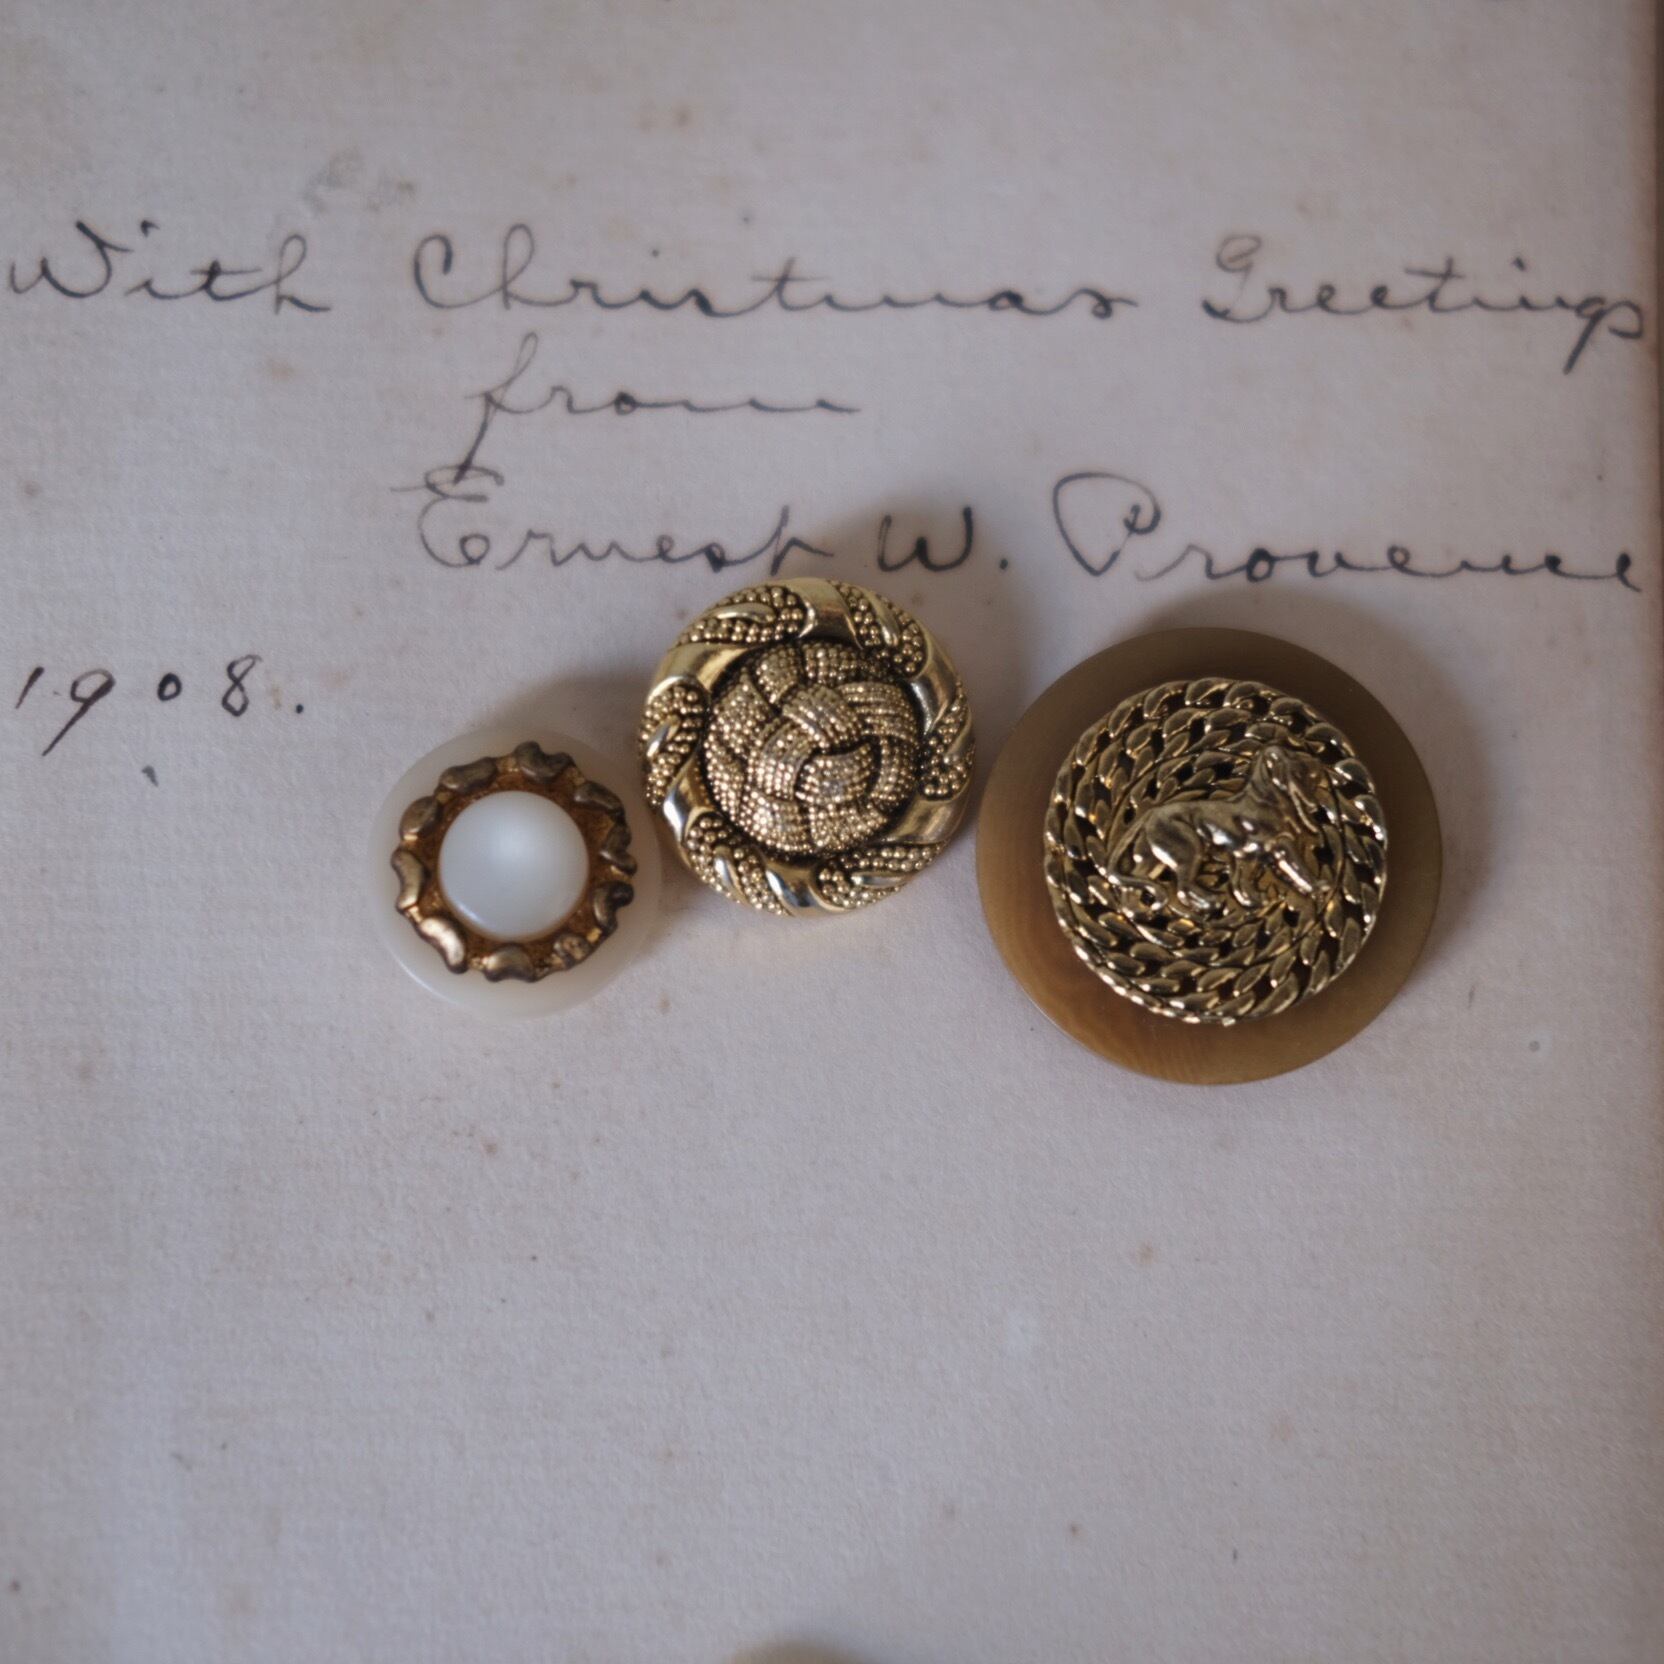 With Christmas Greetings
from
Ernest W. Provence
1908.